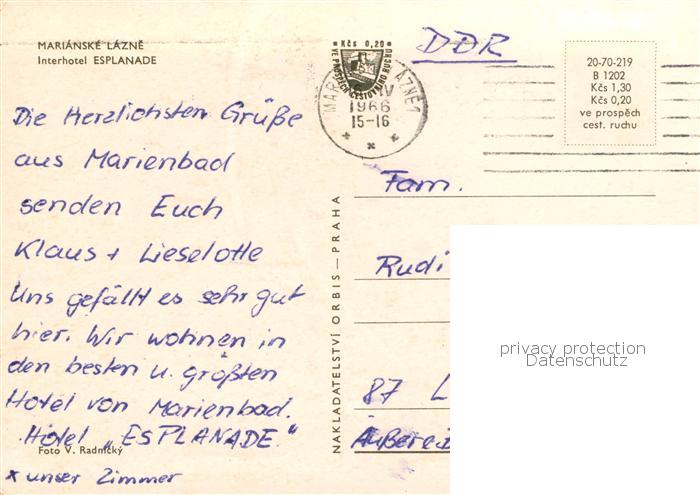 MARIÁNSKÉ LÁZNĚ
Interhotel ESPLANADE
Die Herzlichsten Grüße
aus Marienbad
senden Euch
Klaus + Lieselotte
Uns gefällt es sehr gut
hier. Wir wohnen in
den besten u. größten
Hotel von Marienbad.
Hotel „ESPLANADE."
Foto V. Radnický
x unser Zimmer
NAKLADATELSTVÍ ORBIS — PRAHA
Kčs 0,20
VE PROSPĚCH CESTOVNÍHO RUCHU
LÁZNĚ 1
IV
1966
15-16
DDR
20-70-219
B 1202
Kčs 1,30
Kčs 0,20
ve prospěch
cest. ruchu
Fam.
Rudi
87 L
privacy protection
Datenschutz